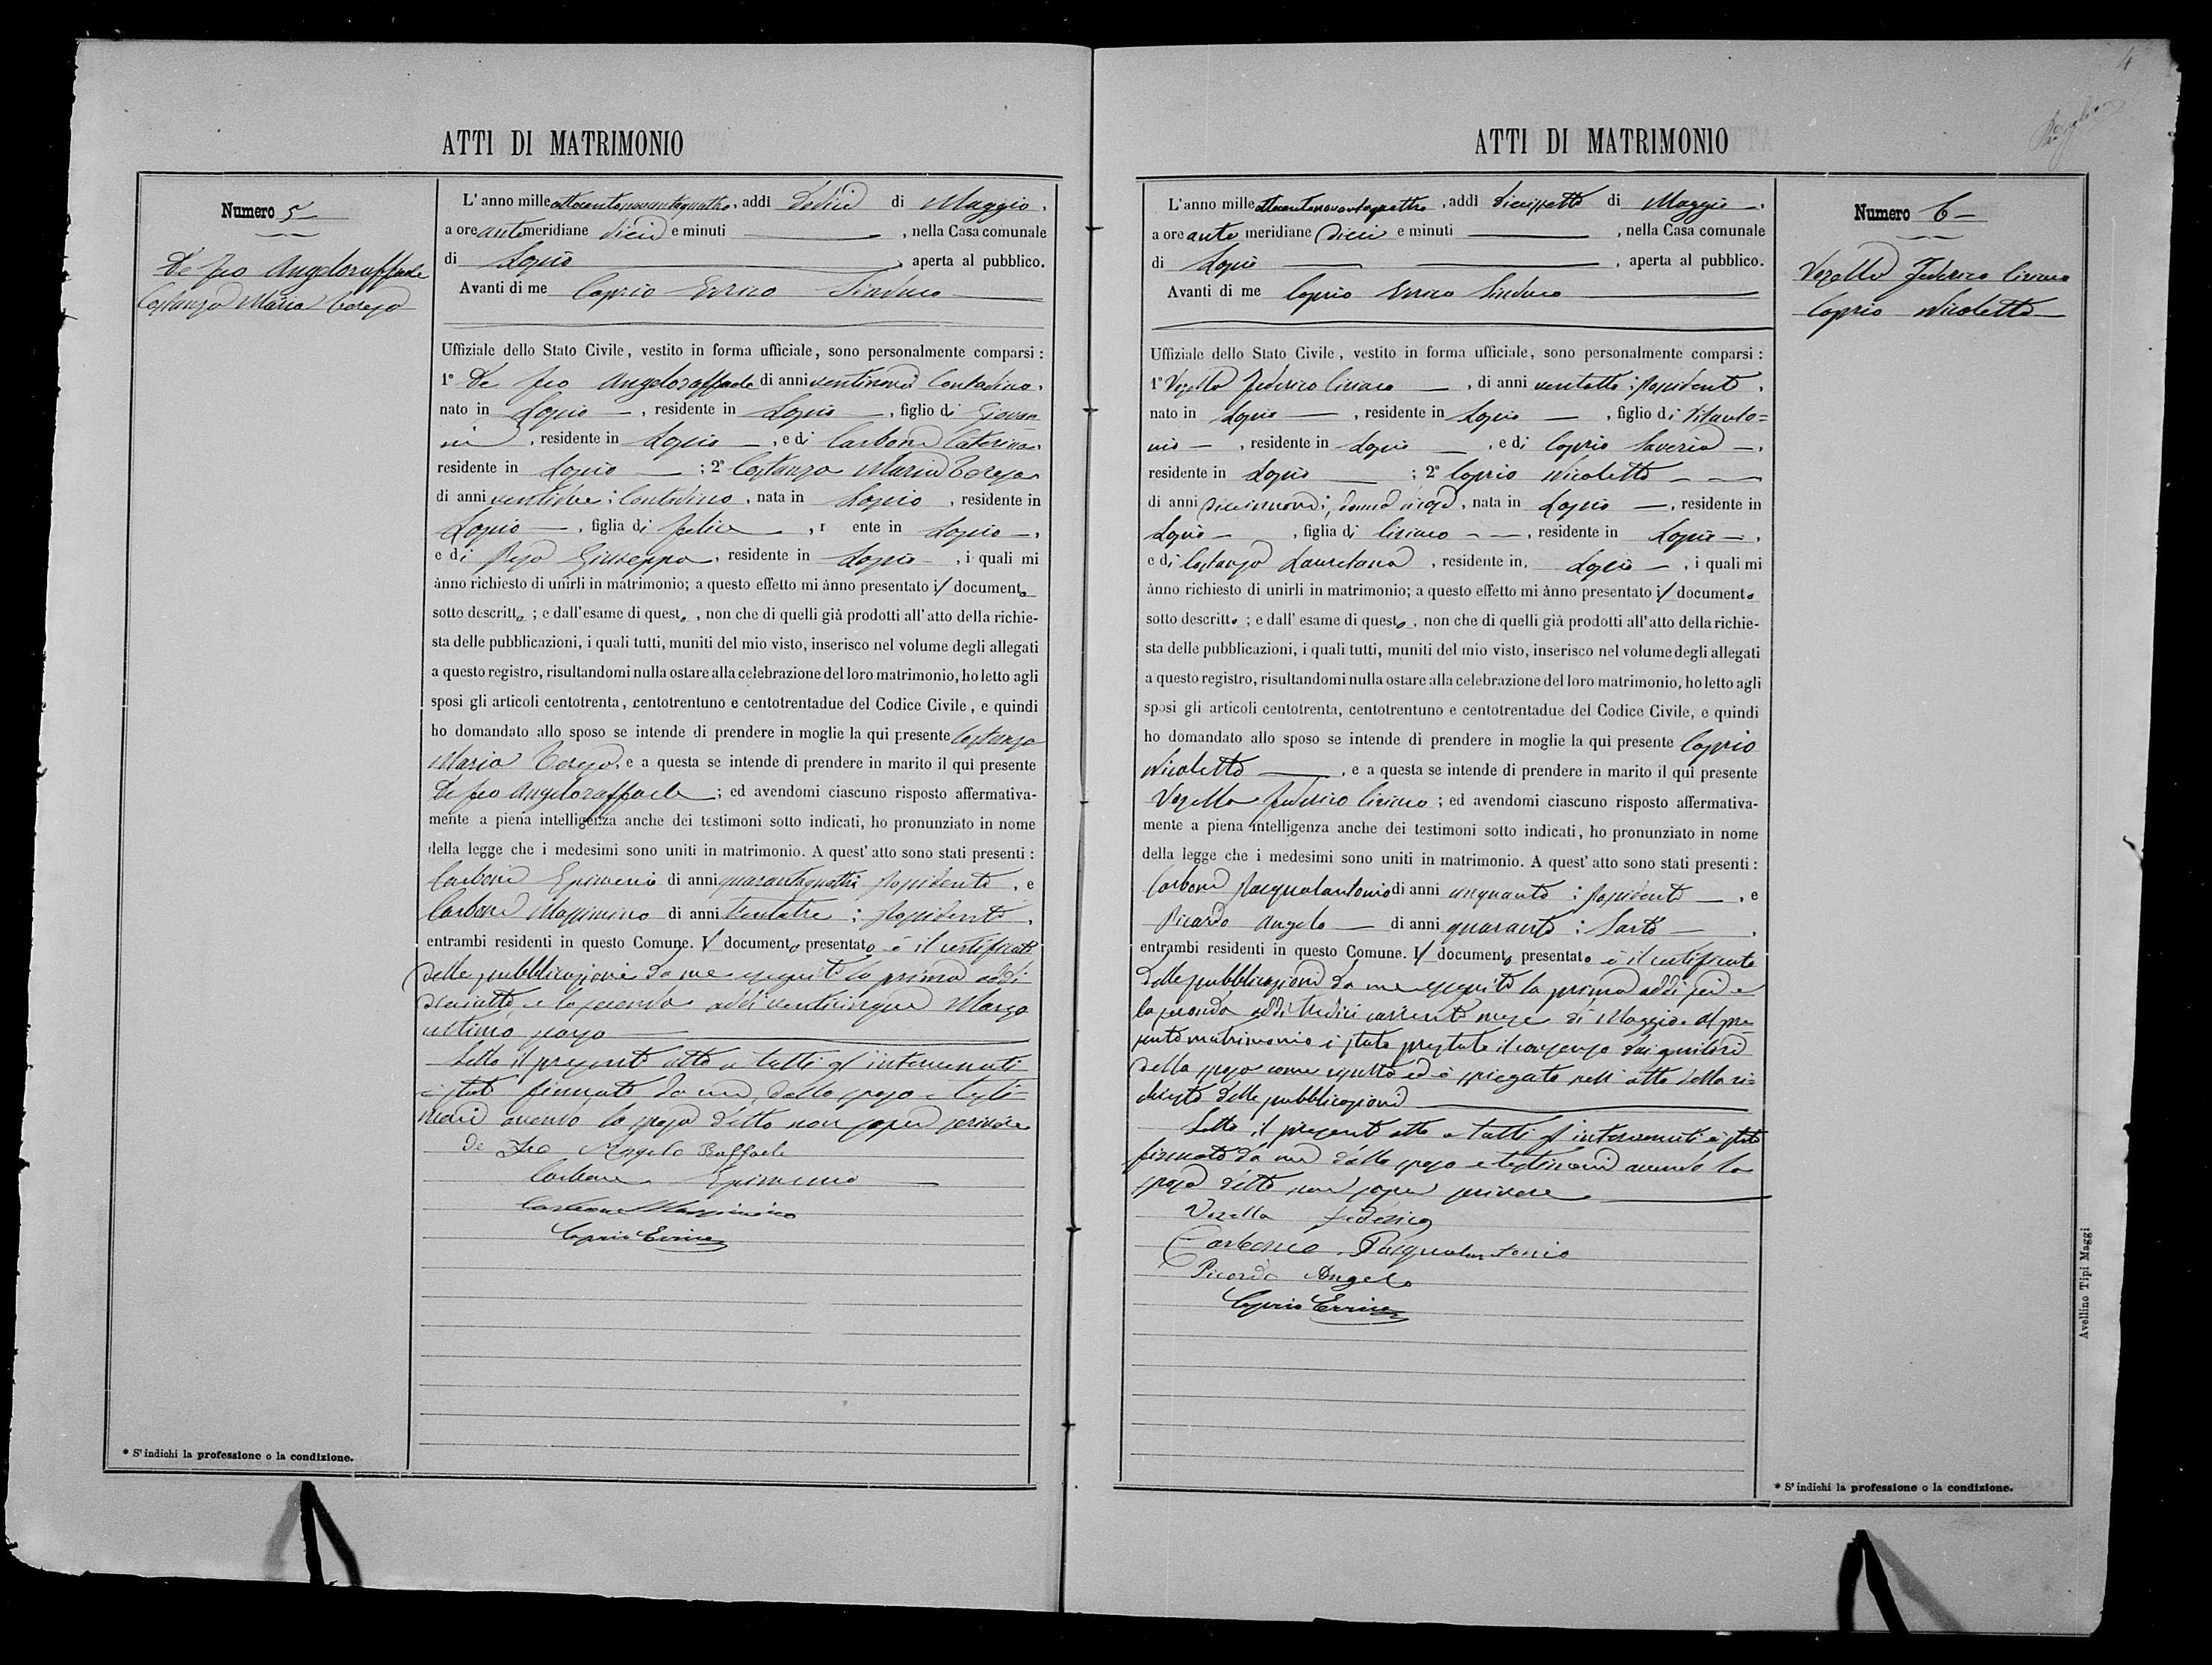 ATTI DI MATRIMONIO
Numero 5
De Feo Angeloraffaele
Costanza Maria Teresa
L'anno mille ottocentonovantaquattro, addì dodici di Maggio,
a ore antemeridiane dieci e minuti , nella Casa comunale
di Lapio , aperta al pubblico.
Avanti di me Caprio Errico Sindaco
Uffiziale dello Stato Civile, vestito in forma ufficiale, sono personalmente comparsi:
1° De Feo Angeloraffaele di anni ventinove Contadino,
nato in Lapio —, residente in Lapio —, figlio di Giovan
ni , residente in Lapio —, e di Carbone Caterina,
residente in Lapio — ; 2° Costanza Maria Teresa
di anni ventidue; Contadina, nata in Lapio , residente in
Lapio —, figlia di Felice , r ente in Lapio —,
e di Giuseppa, residente in Lapio —, i quali mi
ànno richiesto di unirli in matrimonio; a questo effetto mi ànno presentato il documento
sotto descritto; e dall'esame di questo, non che di quelli già prodotti all'atto della richie-
sta delle pubblicazioni, i quali tutti, muniti del mio visto, inserisco nel volume degli allegati
a questo registro, risultandomi nulla ostare alla celebrazione del loro matrimonio, ho letto agli
sposi gli articoli centotrenta, centotrentuno e centotrentadue del Codice Civile, e quindi
ho domandato allo sposo se intende di prendere in moglie la qui presente Costanza
Maria Teresa, e a questa se intende di prendere in marito il qui presente
De Feo Angeloraffaele ; ed avendomi ciascuno risposto affermativa-
mente a piena intelligenza anche dei testimoni sotto indicati, ho pronunziato in nome
della legge che i medesimi sono uniti in matrimonio. A quest'atto sono stati presenti:
Carbone Epimenio di anni quarantaquattro possidente, e
Carbone Massimino di anni trentatre; possidente,
entrambi residenti in questo Comune. Il documento presentato è il certificato
delle pubblicazioni da me eseguite la prima addì
diciotto e la seconda addì venticinque Marzo
ultimo scorso
Letto il presente atto a tutti gl'intervenuti
è stato firmato da me, dallo sposo e testi-
moni avendo la sposa detto non saper scrivere
De Feo Angelo Raffaele
Carbone Epimenio
Carbone Massimino
Caprio Errico
* S'indichi la professione o la condizione.
4
ATTI DI MATRIMONIO
Numero 6
Vozella Federico Ciriaco
Caprio Nicoletta
L'anno mille ottocentonovantaquattro, addì diciassette di Maggio —,
a ore antemeridiane dieci e minuti , nella Casa comunale
di Lapio , aperta al pubblico.
Avanti di me Caprio Errico Sindaco
Uffiziale dello Stato Civile, vestito in forma ufficiale, sono personalmente comparsi:
1° Vozella Federico Ciriaco —, di anni ventotto; possidente,
nato in Lapio —, residente in Lapio —, figlio di Vitanto=
nio —, residente in Lapio —, e di Caprio Saveria —,
residente in Lapio — ; 2° Caprio Nicoletta
di anni diciannove; , nata in Lapio —, residente in
Lapio —, figlia di Ciriaco —, residente in Lapio —,
e di Costanza Lauretana , residente in Lapio —, i quali mi
ànno richiesto di unirli in matrimonio; a questo effetto mi ànno presentato il documento
sotto descritto; e dall'esame di questo, non che di quelli già prodotti all'atto della richie-
sta delle pubblicazioni, i quali tutti, muniti del mio visto, inserisco nel volume degli allegati
a questo registro, risultandomi nulla ostare alla celebrazione del loro matrimonio, ho letto agli
sposi gli articoli centotrenta, centotrentuno e centotrentadue del Codice Civile, e quindi
ho domandato allo sposo se intende di prendere in moglie la qui presente Caprio
Nicoletta —, e a questa se intende di prendere in marito il qui presente
Vozella Federico Ciriaco ; ed avendomi ciascuno risposto affermativa-
mente a piena intelligenza anche dei testimoni sotto indicati, ho pronunziato in nome
della legge che i medesimi sono uniti in matrimonio. A quest'atto sono stati presenti:
Carbone Pasqualantonio di anni cinquanta; possidente —, e
Picardo Angelo — di anni quaranta; Sarto —,
entrambi residenti in questo Comune. Il documento presentato è il certificato
delle pubblicazioni da me eseguite la prima addì sei e
la seconda addì tredici corrente mese di Maggio. Al pre
sente matrimonio è stato prestato il consenso dai genitori
della sposa come risulta ed è spiegato nell'atto della ri=
chiesta delle pubblicazioni
Letto il presente atto a tutti gl'intervenuti è stato
firmato da me dallo sposo e testimoni avendo la
sposa detto non saper scrivere
Vozella Federico
Carbone Pasqualantonio
Picardo Angelo
Caprio Errico
* S'indichi la professione o la condizione.
Avellino Tipi Maggi